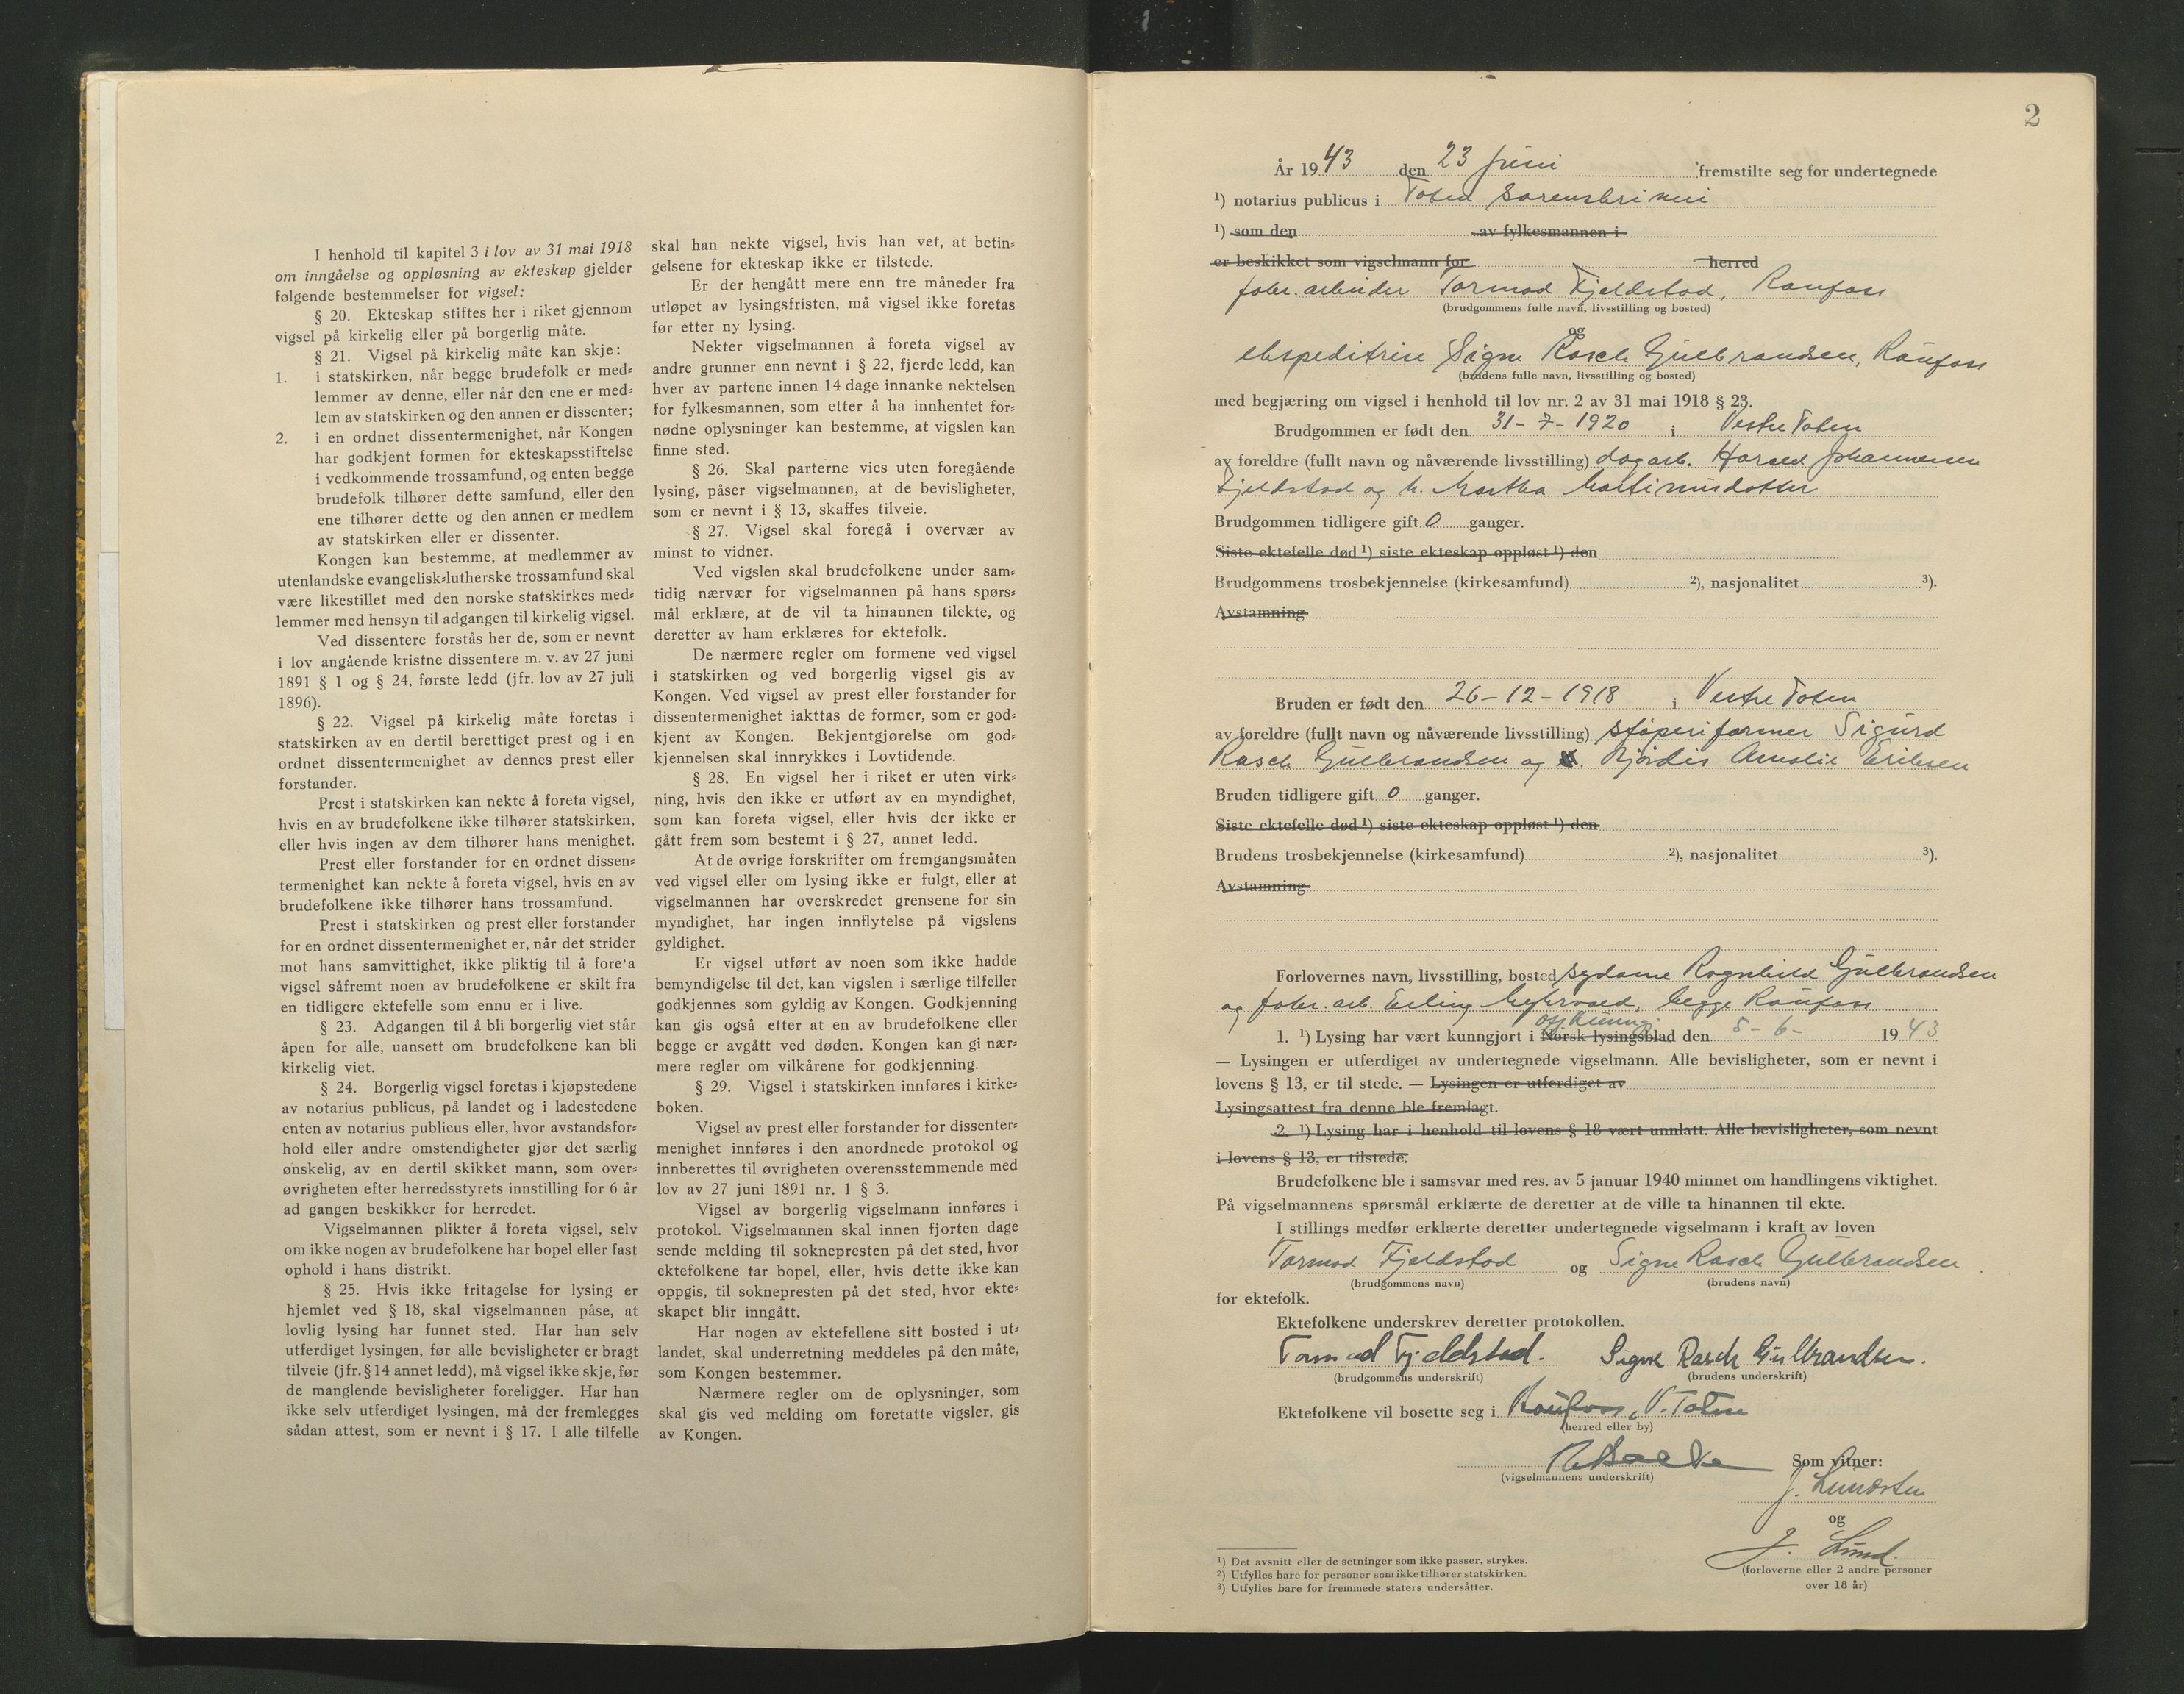 I henhold til kapitel 3 i lov av 31 mai 1918
om inngåelse og oppløsning av ekteskap gjelder
følgende bestemmelser for vigsel:
§ 20. Ekteskap stiftes her i riket gjennom
vigsel på kirkelig eller på borgerlig måte.
§ 21. Vigsel på kirkelig måte kan skje:
1. i statskirken, når begge brudefolk er med-
lemmer av denne, eller når den ene er med-
lem av statskirken og den annen er dissenter;
2. i en ordnet dissentermenighet, når Kongen
har godkjent formen for ekteskapsstiftelse
i vedkommende trossamfund, og enten begge
brudefolk tilhører dette samfund, eller den
ene tilhører dette og den annen er medlem
av statskirken eller er dissenter.
Kongen kan bestemme, at medlemmer av
utenlandske evangelisk-lutherske trossamfund skal
være likestillet med den norske statskirkes med-
lemmer med hensyn til adgangen til kirkelig vigsel.
Ved dissentere forstås her de, som er nevnt
i lov angående kristne dissentere m. v. av 27 juni
1891 § 1 og § 24, første ledd (jfr. lov av 27 juli
1896).
§ 22. Vigsel på kirkelig måte foretas i
statskirken av en dertil berettiget prest og i en
ordnet dissentermenighet av dennes prest eller
forstander.
Prest i statskirken kan nekte å foreta vigsel,
hvis en av brudefolkene ikke tilhører statskirken,
eller hvis ingen av dem tilhører hans menighet.
Prest eller forstander for en ordnet dissen-
termenighet kan nekte å foreta vigsel, hvis en av
brudefolkene ikke tilhører hans trossamfund.
Prest i statskirken og prest eller forstander
for en ordnet dissentermenighet er, når det strider
mot hans samvittighet, ikke pliktig til å fore'a
vigsel såfremt noen av brudefolkene er skilt fra
en tidligere ektefelle som ennu er i live.
§ 23. Adgangen til å bli borgerlig viet står
åpen for alle, uansett om brudefolkene kan bli
kirkelig viet.
§ 24. Borgerlig vigsel foretas i kjøpstedene
av notarius publicus, på landet og i ladestedene
enten av notarius publicus eller, hvor avstandsfor-
hold eller andre omstendigheter gjør det særlig
ønskelig, av en dertil skikket mann, som over-
øvrigheten efter herredsstyrets innstilling for 6 år
ad gangen beskikker for herredet.
Vigselmannen plikter å foreta vigsel, selv
om ikke nogen av brudefolkene har bopel eller fast
ophold i hans distrikt.
§ 25. Hvis ikke fritagelse for lysing er
hjemlet ved § 18, skal vigselmannen påse, at
lovlig lysing har funnet sted. Har han selv
utferdiget lysingen, før alle bevisligheter er bragt
tilveie (jfr. § 14 annet ledd), må vigsel ikke skje, før
de manglende bevisligheter foreligger. Har han
ikke selv utferdiget lysingen, må der fremlegges
sådan attest, som er nevnt i § 17. I alle tilfelle
skal han nekte vigsel, hvis han vet, at betin-
gelsene for ekteskap ikke er tilstede.
Er der hengått mere enn tre måneder fra
utløpet av lysingsfristen, må vigsel ikke foretas
før etter ny lysing.
Nekter vigselmannen å foreta vigsel av
andre grunner enn nevnt i § 22, fjerde ledd, kan
hver av partene innen 14 dage innanke nektelsen
for fylkesmannen, som etter å ha innhentet for-
nødne oplysninger kan bestemme, at vigslen kan
finne sted.
§ 26. Skal parterne vies uten foregående
lysing, påser vigselmannen, at de bevisligheter,
som er nevnt i § 13, skaffes tilveie.
§ 27. Vigsel skal foregå i overvær av
minst to vidner.
Ved vigslen skal brudefolkene under sam-
tidig nærvær for vigselmannen på hans spørs-
mål erklære, at de vil ta hinannen tilekte, og
deretter av ham erklæres for ektefolk.
De nærmere regler om formene ved vigsel
i statskirken og ved borgerlig vigsel gis av
Kongen. Ved vigsel av prest eller forstander for
dissentermenighet iakttas de former, som er god-
kjent av Kongen. Bekjentgjørelse om god-
kjennelsen skal innrykkes i Lovtidende.
§ 28. En vigsel her i riket er uten virk-
ning, hvis den ikke er utført av en myndighet,
som kan foreta vigsel, eller hvis der ikke er
gått frem som bestemt i § 27, annet ledd.
At de øvrige forskrifter om fremgangsmåten
ved vigsel eller om lysing ikke er fulgt, eller at
vigselmannen har overskredet grensene for sin
myndighet, har ingen innflytelse på vigslens
gyldighet.
Er vigsel utført av noen som ikke hadde
bemyndigelse til det, kan vigslen i særlige tilfeller
godkjennes som gyldig av Kongen. Godkjenning
kan gis også etter at en av brudefolkene eller
begge er avgått ved døden. Kongen kan gi nær-
mere regler om vilkårene for godkjenning.
§ 29. Vigsel i statskirken innføres i kirke-
boken.
Vigsel av prest eller forstander for dissenter-
menighet innføres i den anordnede protokol og
innberettes til øvrigheten overensstemmende med
lov av 27 juni 1891 nr. 1 § 3.
Vigsel av borgerlig vigselmann innføres i
protokol. Vigselmannen skal innen fjorten dage
sende melding til soknepresten på det sted, hvor
ektefolkene tar bopel, eller, hvis dette ikke kan
oppgis, til soknepresten på det sted, hvor ekte-
skapet blir inngått.
Har nogen av ektefellene sitt bosted i ut-
landet, skal underretning meddeles på den måte,
som Kongen bestemmer.
Nærmere regler om de oplysninger, som
skal gis ved melding om foretatte vigsler, gis
av Kongen.
2
År 1943 den 23 juni fremstilte seg for undertegnede
1) notarius publicus i Toten sorenskriveri
1) som den av fylkesmannen i
er beskikket som vigselmann for herred
fabr. arbeider Tormod Fjeldstad, Raufoss
(brudgommens fulle navn, livsstilling og bosted)
og
ekspeditrise Signe Rasch Gulbrandsen, Raufoss
(brudens fulle navn, livsstilling og bosted)
med begjæring om vigsel i henhold til lov nr. 2 av 31 mai 1918 § 23.
Brudgommen er født den 31-7-1920 i Vestre Toten
av foreldre (fullt navn og nåværende livsstilling) dagarb. Harald Johannessen
Fjeldstad og h. Martha Martinusdotter
Brudgommen tidligere gift 0 ganger.
Siste ektefelle død 1) siste ekteskap oppløst 1) den
Brudgommens trosbekjennelse (kirkesamfund) 2), nasjonalitet 3).
Avstamning
Bruden er født den 26-12-1918 i Vestre Toten
av foreldre (fullt navn og nåværende livsstilling) støperiformer Sigurd
Rasch Gulbrandsen og Hjørdis Amalie Eriksen
Bruden tidligere gift 0 ganger.
Siste ektefelle død 1) siste ekteskap oppløst 1) den
Brudens trosbekjennelse (kirkesamfund) 2), nasjonalitet 3).
Avstamning
Forlovernes navn, livsstilling, bosted sydame Ragnhild Gulbrandsen
og fabr. arb. Erling begge Raufoss
off. kunng.
1. 1) Lysing har vært kunngjort i Norsk lysingsblad den 5-6- 1943
— Lysingen er utferdiget av undertegnede vigselmann. Alle bevisligheter, som er nevnt i
lovens § 13, er til stede. — Lysingen er utferdiget av
Lysingsattest fra denne ble fremlagt.
2. 1) Lysing har i henhold til lovens § 18 vært unnlatt. Alle bevisligheter, som nevnt
i lovens § 13, er tilstede.
Brudefolkene ble i samsvar med res. av 5 januar 1940 minnet om handlingens viktighet.
På vigselmannens spørsmål erklærte de deretter at de ville ta hinannen til ekte.
I stillings medfør erklærte deretter undertegnede vigselmann i kraft av loven
Tormod Fjeldstad og Signe Rasch Gulbrandsen
(brudgommens navn) (brudens navn)
for ektefolk.
Ektefolkene underskrev deretter protokollen.
Tormod Fjeldstad. Signe Rasch Gulbrandsen.
(brudgommens underskrift) (brudens underskrift)
Ektefolkene vil bosette seg i Raufoss, V. Toten
(herred eller by)
(vigselmannens underskrift) Som vitner:
J. Lundsten
og
J. Lund.
(forloverne eller 2 andre personer
over 18 år)
1) Det avsnitt eller de setninger som ikke passer, strykes.
2) Utfylles bare for personer som ikke tilhører statskirken.
3) Utfylles bare for fremmede staters undersåtter.